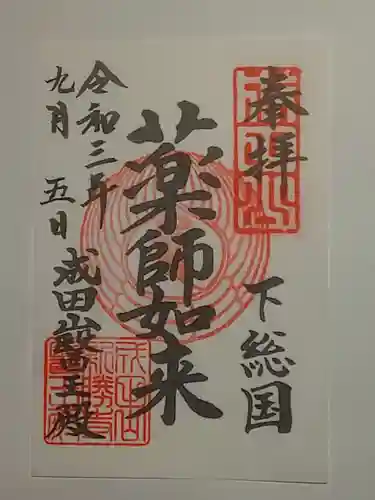 奉拝
下総国
薬師如来
令和三年
九月五日
成田山醫王殿